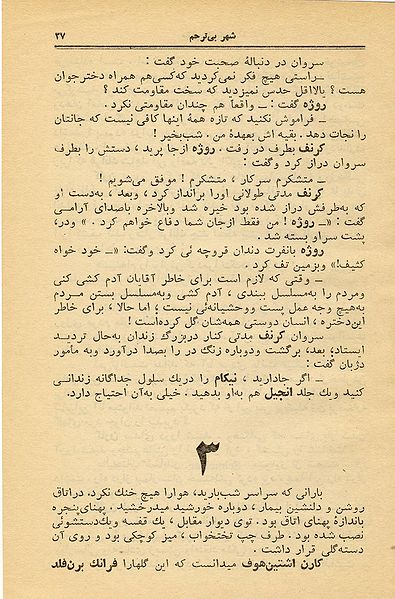 شهر بی‌ترحم ۲۷
سروان در دنبالهٔ صحبت خود گفت :
ــ راستی هیچ فکر نمی‌کردید که کسی هم همراه دختر جوان
هست ؟ یا لااقل حدس نمیزدید که سخت مقاومت کند ؟
روژه گفت : ــ واقعاً هم چندان مقاومتی نکرد .
ــ فراموش نکنید که تازه همهٔ اینها کافی نیست که جانتان
را نجات دهد . بقیه اش بعهدهٔ من . شب‌بخیر !
کرنف بطرف در رفت . روژه ازجا پرید ، دستش را بطرف
سروان دراز کرد وگفت :
ــ متشکرم سرکار ، متشکرم ! موفق می‌شویم !
کرنف مدتی طولانی اورا برانداز کرد ، وبعد ، به‌دست او
که به‌طرفش دراز شده بود خیره شد وبالاخره باصدای آرامـی
گفت : «ــ روژه ! من فقط ازجان شما دفاع خواهم کرد . » ودر،
پشت سراو بسته شد .
روژه بانفرت دندان قروچه ئی کرد وگفت: «ــ خود خواه
کثیف!» وبزمین تف کرد .
ــ وقتی که لازم است برای خاطر آقایان آدم کشی کنی
ومردم را به‌مسلسل ببندی ، آدم کشی وبه‌مسلسل بستن مـردم
به‌هیچ وجه عمل پست ووحشیانه‌ئی نیست ؛ اما حالا ، برای خاطر
این‌دختره ، انسان دوستی همه‌شان گل کرده‌است !
سروان کرنف مدتی کنار دربزرگ زندان به‌حال تردیـد
ایستاد؛ بعد، برگشت ودوباره زنگ در را بصدا درآورد وبه مأمور
دژبان گفت :
ــ اگر جادارید ، نیگام را دریك سلول جداگانه زندانـی
کنید ویك جلد انجیل هم به‌او بدهید . خیلی به‌آن احتیاج دارد.
۳
بارانی که سراسر شب‌بارید، هوارا هیچ خنك نکرد. دراتاق
روشن و دلنشین بیمار ، دوباره خورشید میدرخشید . پهنای‌پنجره
باندازهٔ پهنای اتاق بود . توی دیوار مقابل ، یك قفسه ویك‌دستشوئی
نصب شده بود . طرف چپ تختخواب ، میز کوچکی بود و روی آن
دسته‌گلی قرار داشت .
کارن اشتین‌هوف میدانست که این گلهارا فرانك برن‌فلد